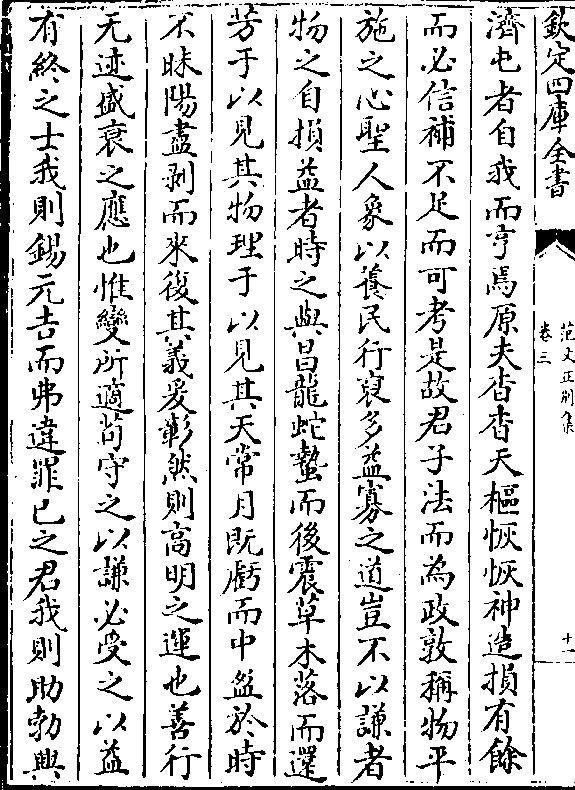 欽定四庫全書
范文正別集
卷三
十一
濟屯者自我而亨焉原夫杳杳天樞恢恢神造損有餘
而必信補不足而可考是故君子法而為政敦稱物平
施之心聖人象以養民行裒多益寡之道豈不以謙者
物之自損益者時之與昌龍蛇蟄而後震草木落而還
芳于以見其物理于以見其天常月既虧而中盈於時
不昧陽盡剥而來復其義爰彰然則高明之運也善行
无迹盛衰之應也惟變所適茍守之以謙必受之以益
有終之士我則錫元吉而弗違罪已之君我則助勃興